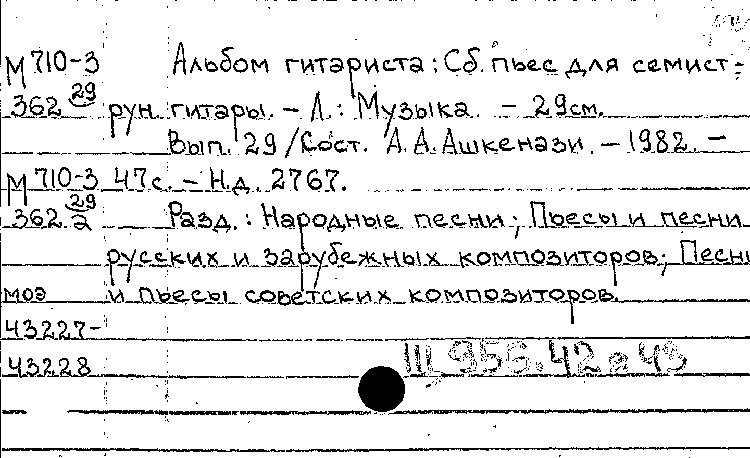 М 710-3 Альбом гитариста: Сб. пьес для семист-
362 29 рун. гитары. – Л.: Музыка. – 29см.
Вып. 29 / Сост. А. А. Ашкенази. – 1982. –
М 710-3 47с. – Н.д. 2767.
362 29 2 Разд.: Народные песни; Пьесы и песни
русских и зарубежных композиторов; Песни
моэ и пьесы советских композиторов.
43227-
43228 Щ 956.42 я 43